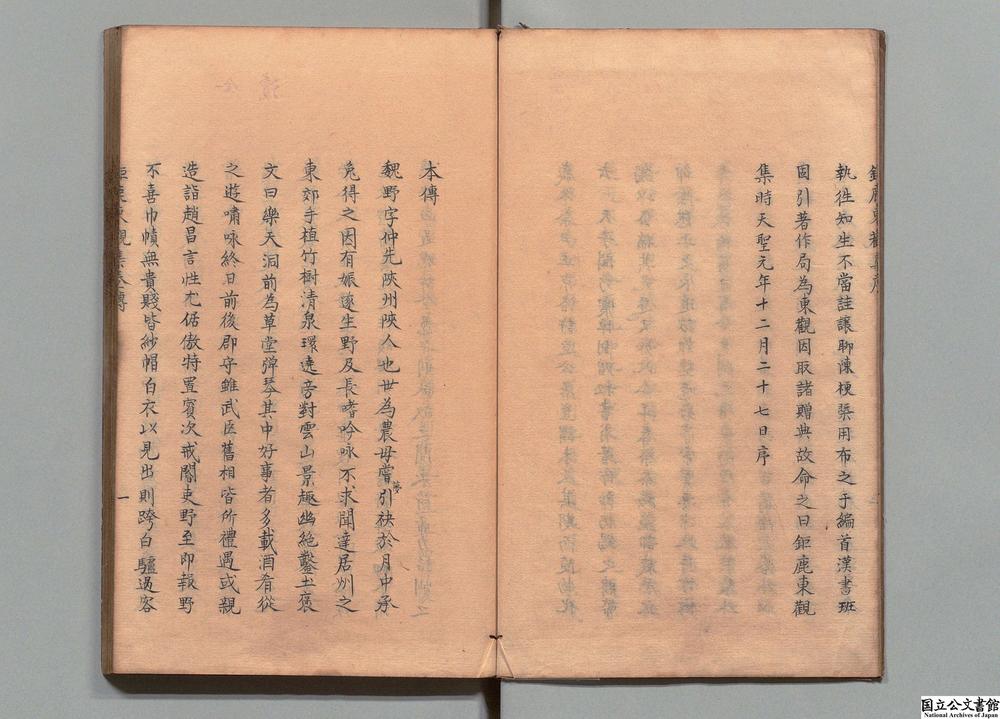 鉅鹿東觀集序
執徃知生不當註讓聊陳梗槩用布之于編首漢書班
固引著作局為東觀因取諸贈典故命之曰鉅鹿東觀
集時天聖元年十二月二十七日序
本傳
魏野字仲先陝州陝人也世為農母嘗夢引袂於月中承
兔得之因有娠遂生野及長嗜吟咏不求聞達居州之
東郊手植竹樹清泉環遶旁對雲山景趣幽絶鑿土袤
文曰樂天洞前為草堂彈琴其中好事者多載酒肴從
之遊嘯咏終日前後郡守雖武臣舊相皆所禮遇或親
造詣趙昌言性尤倨傲特置賓次戒閽吏野至即報野
不喜巾幘無貴賤皆紗帽白衣以見出則跨白驢過客
鉅鹿東觀集本傳
一
国立公文書館
National Archives of Japan